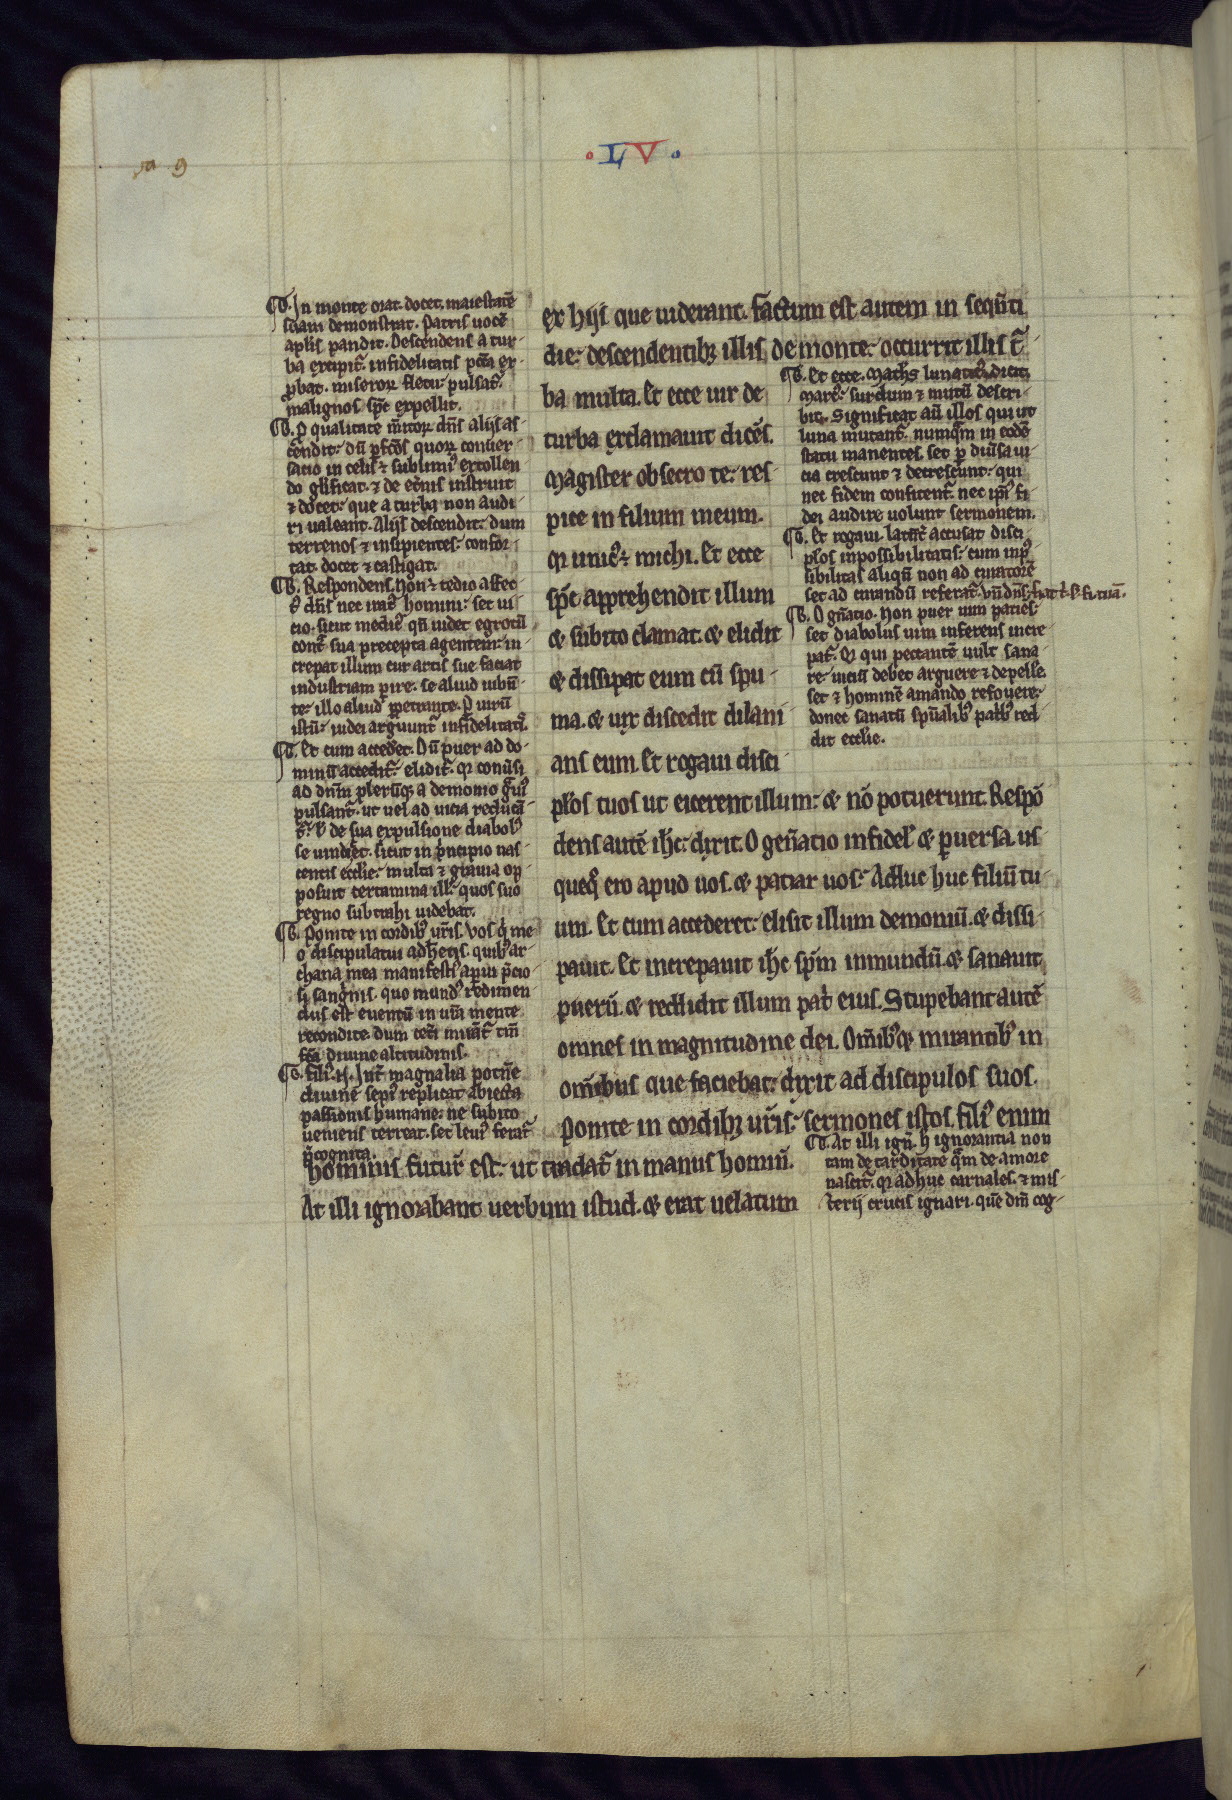 ·LV·
9
In monte orat. docet. maiestatē
suam demonstrat. Patris uocē
aplis pandit. Descendens a tur-
ba excipit̄. infidelitatis pctā ex-
p̄bat. miseroꝝ fletu pulsat̄.
malignos sp̄c expellit.
P qualitate m̄itoꝝ dn̄s alijs as-
cendit: dū pfcōs quoꝝ conuer-
satio in celis ⁊ sublimiꝰ extollen
do glificat. ⁊ de et̄nis instruit
⁊ docet: que a turba non audi-
ri ualeant. Alijs descendit: dum
terrenos ⁊ insipientes confor-
tat. docet ⁊ castigat.
Respondens. Non ⁊ tedio affec-
tꝰ dn̄s nec iratꝰ homini: set ui-
cio. sicut medicꝰ qn̄ uidet egrotū
cont̄ sua precepta agentem: in
crepat illum cur artis sue faciat
industriam pire. se aliud iubn̄-
te: illo aliud ppetrante. P uirū
istū: iudei arguunt̄ infidelitatꝰ.
Et cum accedet. Dū puer ad do-
minū accedit: elidit̄. qꝛ conūsi
ad dn̄m plerūqꝫ a demonio gͣuiꝰ
pulsant̄. ut uel ad uicia reducā-
t̄: ł de sua expulsione diabolꝰ
se uindicet. sicut in pncipio nas-
centis ecclie: multa ⁊ grauia op-
posuit certamina illis quos suo
regno subtrahi uidebat.
Ponite in cordibꝰ ur̄is. Vos qͥ me-
o discipulatui adhetis. quibꝰ ar-
chana mea manifestiꝰ apui. p̄cio-
si sangͥnis quo mundꝰ redimen-
dus est euentū in ur̄a mente
recondite. dum cet̄i mirāt̄ tm̄
fcā diuine altitudinis.
filiꝰ .n. Int̄ magnalia potn̄e
diuine sepiꝰ replicat abiecta
passionis humane: ne subito
ueniens terreat. set leuiꝰ ferat̄
p̄cognita.
ex hijs que uiderant. factum est autem in seqn̄ti
die: descendentibꝫ illis de monte: occurrit illis t̄
ba multa. Et ecce uir de
turba exclamauit dicēs.
Magister obsecro te: res-
pice in filium meum.
qꝛ unicꝰ ⁊ michi. Et ecce
sp̄c apprehendit illum
⁊ subito clamat. ⁊ elidit
⁊ dissipat eum cū spu-
ma. ⁊ uix discedit dilani-
ans eum. Et rogaui disci-
plos tuos ut eicerent illum: ⁊ nō potuerunt. Respō
dens autē ih̄c: dixit. O gen̄atio infidelꝰ ⁊ puersa. us-
quequo ero apud uos. ⁊ patiar uos: Adduc huc filiū tu-
um. Et cum accederet: elisit illum demoniū. ⁊ dissi-
pauit. Et increpauit ih̄c sp̄m inmundū. ⁊ sanauit
puerū. ⁊ reddidit illum patͥ eius. Stupebant autē
omnes in magnitudine dei. Om̄ibꝰqꝫ mirantibꝰ in
om̄ibus que faciebat: dixit ad discipulos suos.
Ponite in cordibꝫ ur̄is: sermones istos. filiꝰ enim
hominis futurꝰ est: ut tradat̄ in manus hominū.
At illi ignorabant uerbum istud. ⁊ erat uelatum
Et ecce. Mathꝰ lunaticū dicit.
Marcꝰ: surdum ⁊ mutū descri-
bit. Significat aū illos qui ut
luna mutant̄. numqͣm in eodē
statu manentes. set p diu̇sa ui-
cia crescunt ⁊ decrescunt: qui
nec fidem confitent̄. nec ipsi fi-
dei audire uolunt sermonem.
Et rogaui. latent̄ accusat disci-
plos inpossibilitatis: cum inpos-
sibilitas aliqn̄ non ad curatorē
set ad curandū referat̄. un̄ dn̄s. fiat t̄ s̄ fi. tuā.
O gn̄atio. Non puer uim patiēs
set diabolus uim inferens incre-
pat̄. Qꝛ qui peccantē uult sana-
re: uiciū debet arguere ⁊ depelle.
set ⁊ hominē amando refouere:
donec sanatū spūalibꝰ patribꝰ red-
dit ecclie.
At illi ign̄. h̄ ignorantia non
tam de tarditate qͣm de amore
nascit̄. qꝛ adhuc carnales. ⁊ mis-
terij crucis ignari. quē dm̄ cog-